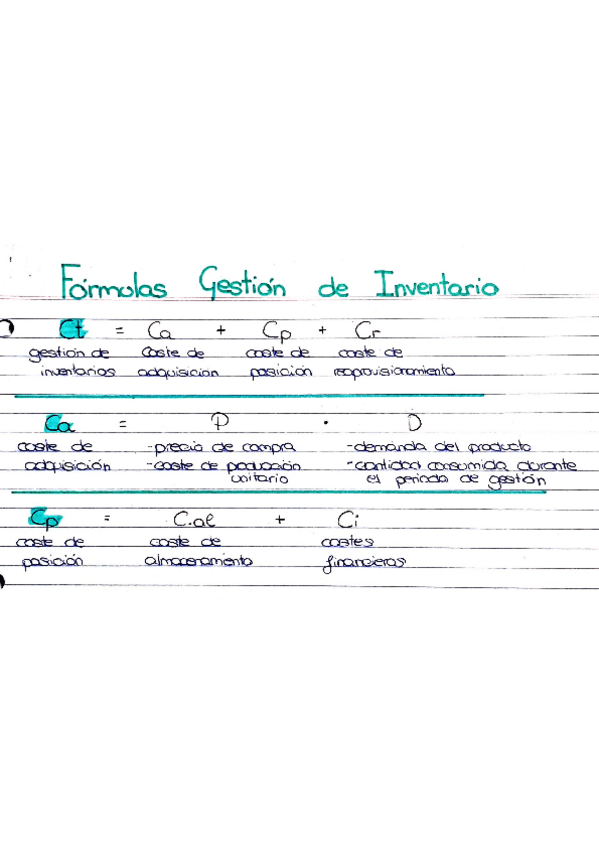 Fórmulas Gestión de Inventario
Ct = Ca + Cp + Cr
gestión de coste de coste de coste de
inventarios adquisición posición reaprovisionamiento
Ca = P · D
coste de -precio de compra -demanda del producto
adquisición -coste de producción -cantidad consumida durante
unitario el periodo de gestión
Cp = C.al + Ci
coste de coste de costes
posición almacenamiento financieros